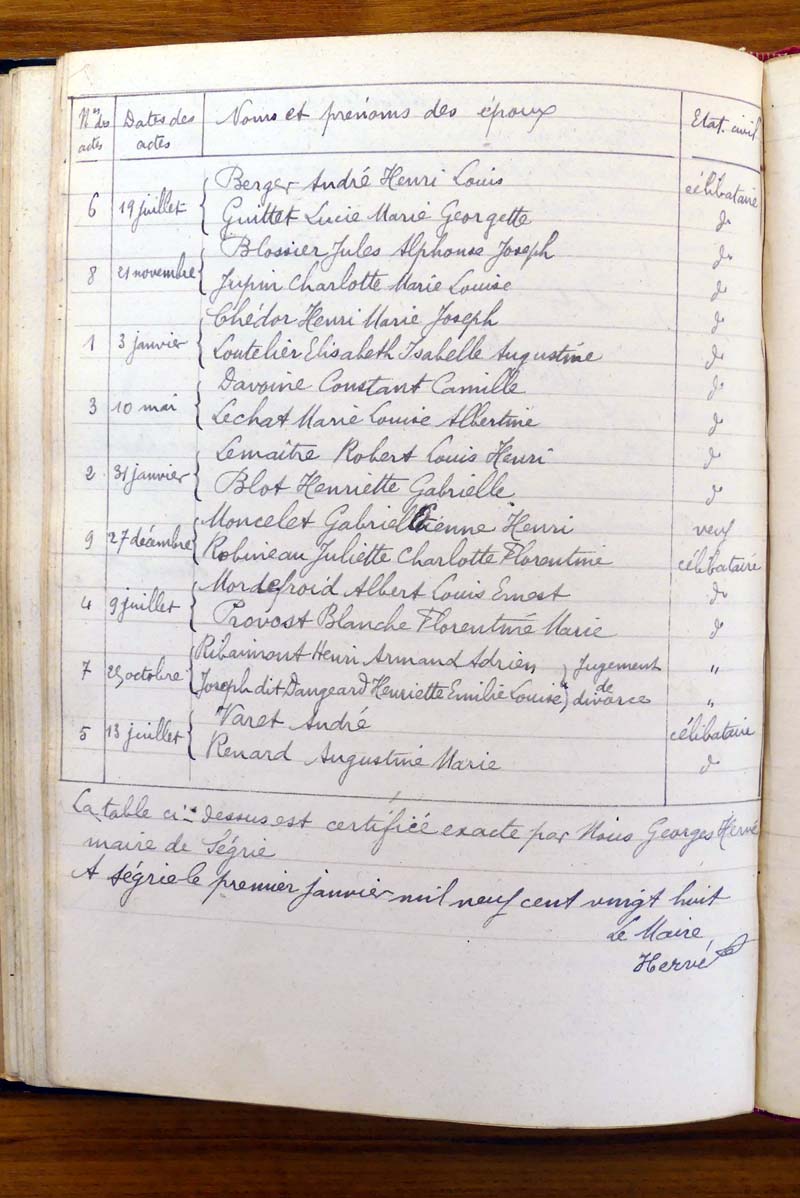 Nos des actes Dates des actes Noms et prénoms des époux Etat civil
Berger André Henri Louis célibataire
6 19 juillet Guittet Lucie Marie Georgette do
Blossier Jules Alphonse Joseph do
8 21 novembre Jupin Charlotte Marie Louise do
Chédor Henri Marie Joseph do
1 3 janvier Loutelier Elisabeth Isabelle Augustine do
Davoine Constant Camille do
3 10 mai Lechat Marie Louise Albertine do
Lemaitre Robert Louis Henri do
2 31 janvier Blot Henriette Gabrielle do
Moncelet Gabriel Etienne Henri veuf
9 27 décembre Robineau Juliette Charlotte Florentine célibataire
Mordefroid Albert Louis Ernest do
4 9 juillet Provost Blanche Florentine Marie do
Ribaimont Henri Armand Adrien Jugement "
7 octobre Joseph dit Dangeard Henriette Emilie Louise de divorce "
Varet André célibataire
5 13 juillet Renard Augustine Marie do
La table ci-dessus est certifiée exacte par Nous Georges Hervé
maire de Ségrie
A Ségrie le premier janvier mil neuf cent vingt huit
Le Maire,
Hervé